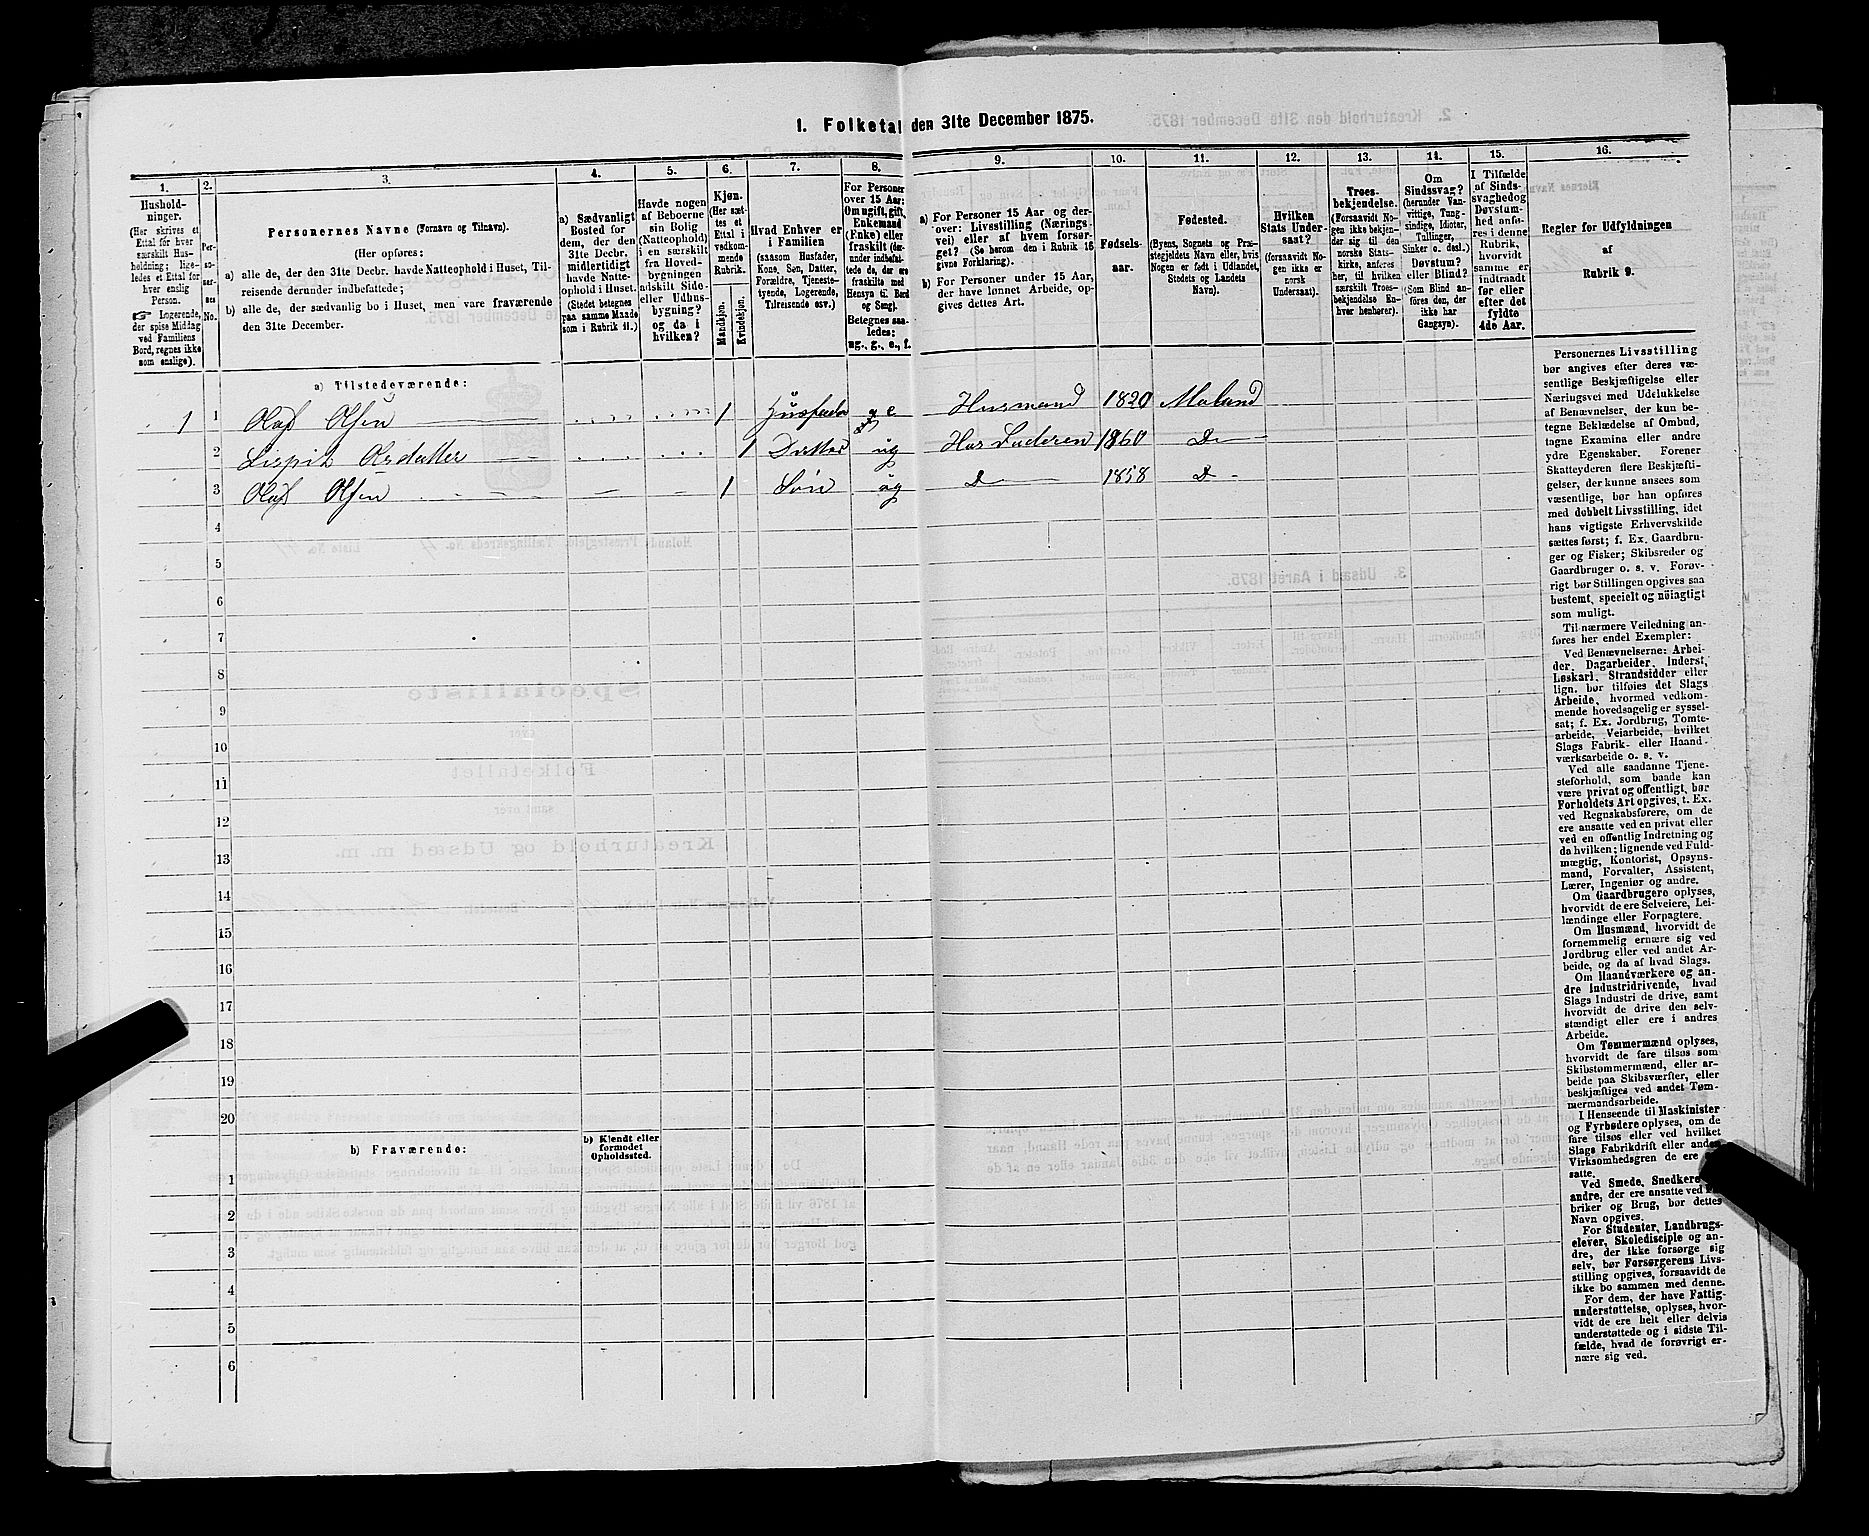 1. Folketal den 31te December 1875.
1. 2. 3. 4. 5. 6. 7. 8. 9. 10. 11. 12. 13. 14. 15. 16.
Hushold-
ninger.
(Her skrives et
Ettal for hver
særskilt Hus-
holdning; lige-
ledes et Ettal for
hver enslig
Person.
☞ Logerende,
der spise Middag
ved Familiens
Bord, regnes ikke
som enslige).
Per-
so-
ner-
nes
No.
Personernes Navne (Fornavn og Tilnavn).
(Her opføres:
a) alle de, der den 31te Decbr. havde Natteophold i Huset, Til-
reisende derunder indbefattede;
b) alle de, der sædvanlig bo i Huset, men vare fraværende
den 31te December.
a) Sædvanligt
Bosted for
dem, der den
31te Decbr.
midlertidigt
havde Natte-
ophold i Huset.
(Stedet betegnes
paa samme Maade
som i Rubrik 11.)
Havde nogen
af Beboerne
sin Bolig
(Natteophold)
i en særskilt
fra Hoved-
bygningen
adskilt Side-
eller Udhus-
bygning?
og da i
hvilken?
Kjøn.
(Her sæt-
tes et
Ettal i
vedkom-
mende
Rubrik.
Mandkjøn.
Kvindekjøn.
Hvad Enhver er
i Familien
(saasom Husfader,
Kone, Søn, Datter,
Forældre, Tjeneste-
tyende, Logerende,
Tilreisende osv.)
For Personer
over 15 Aar:
Om ugift, gift,
Enkemand
(Enke) eller
fraskilt (der-
under indbefat-
tede de, der ere
fraskilte med
Hensyn til Bord
og Seng).
Betegnes saa-
ledes:
ug., g., e., f.
a) For Personer 15 Aar og der-
over: Livsstilling (Nærings-
vei) eller af hvem forsør-
get? (Se herom den i Rubrik 16
givne Forklaring).
b) For Personer under 15 Aar,
der have lønnet Arbeide, op-
gives dettes Art.
Fødsels-
aar.
Fødested.
(Byens, Sognets og Præ-
stegjeldets Navn eller, hvis
Nogen er født i Udlandet,
Stedets og Landets
Navn).
Hvilken
Stats Under-
saat?
(forsaavidt No-
gen ikke er
norsk
Undersaat).
Troes-
bekjendelse.
(Forsaavidt No-
gen ikke bekjen-
der sig til den
norske Stats-
kirke, anføres
her, til hvilken
særskilt Troes-
bekjendelse En-
hver henhører).
Om
Sindssvag?
(herunder Van-
vittige, Tung-
sindige, Idioter,
Tullinger,
Sinker o. desl.)
Døvstum?
eller Blind?
(Som Blind an-
føres den, der
ikke har
Gangsyn).
I Tilfælde
af Sinds-
svaghed og
Døvstum-
hed anfø-
res i denne
Rubrik,
hvorvidt
samme er
indtraadt
før eller
efter det
fyldte
4de Aar.
Regler for Udfyldningen
af
Rubrik 9.
a) Tilstedeværende:
1 1 Olaf Olsen 1 Husfader e Husmand 1820 Moland
2 Lispit Olsdatter 1 Datter ug Hos Faderen 1860 D
3 Olaf Olsen 1 Søn ug D 1858 D
4
5
6
7
8
9
10
11
12
13
14
15
16
17
18
19
20
b) Fraværende:
b) Kjendt eller
formodet
Opholdssted.
1
2
3
4
5
6
Personernes Livsstilling
bør angives efter deres væ-
sentlige Beskjæftigelse eller
Næringsvei med Udelukkelse
af Benævnelser, der kun be-
tegne Beklædelse af Ombud,
tagne Examina eller andre
ydre Egenskaber. Forener
Skatteyderen flere Beskjæfti-
gelser, der kunne ansees som
væsentlige, bør han opføres
med dobbelt Livsstilling, idet
hans vigtigste Erhvervskilde
sættes først; f. Ex. Gaardbru-
ger og Fisker; Skibsreder og
Gaardbruger o. s. v. Forøv-
rigt bør Stillingen opgives saa
bestemt, specielt og nöiagtigt
som muligt.
Til nærmere Veiledning an-
føres her endel Exempler:
Ved Benævnelserne: Arbei-
der, Dagarbeider, Inderst,
Løskarl, Strandsidder eller
lign. bør tilføies det Slags
Arbeide, hvormed vedkom-
mende hovedsagelig er syssel-
sat; f. Ex. Jordbrug, Tomte-
arbeide, Veiarbeide, hvilket
Slags Fabrik- eller Haand-
værksarbeide o. s. v.
Ved alle saadanne Tjene-
steforhold, som baade kan
være privat og offentligt, bør
Forholdets Art opgives, t. Ex.
ved Regnskabsførere, om de
ere ansatte ved en privat eller
ved en offentlig Indretning og
da hvilken; lignende ved Fuld-
mægtig, Kontorist, Opsyns-
mand, Forvalter, Assistent,
Lærer, Ingeniør og andre.
Om Gaardbrugere oplyses,
hvorvidt de ere Selveiere, Lei-
lændinge eller Forpagtere.
Om Husmænd, hvorvidt de
fornemmelig ernære sig ved
Jordbrug eller ved andet Ar-
beide, og da af hvad Slags.
Om Haandværkere og an-
dre Industridrivende, hvad
Slags Industri de drive, samt
hvorvidt de drive den selv-
stændigt eller ere i andres
Arbeide.
Om Tømmermænd oplyses,
hvorvidt de fare tilsøs som
Skibstømmermænd, eller ar-
beide paa Skibsværfter, eller
beskjæftiges ved andet Tøm-
mermandsarbeide.
I Henseende til Maskinister
og Fyrbødere oplyses, om de
fare tilsøs eller ved hvilket
Slags Fabrikdrift eller anden
Virksomhedsgren de ere
satte.
Ved Smede, Snedkere
andre, der ere ansatte ved
briker og Brug, bør dettes
Navn opgives.
For Studenter, Landbrugs-
elever, Skoledisciple og an-
dre, der ikke forsørge sig
selv, bør Forsørgerens Livs-
stilling opgives, forsaavidt de
ikke bo sammen med denne.
For dem, der have Fattig-
understøttelse, oplyses, hvor-
vidt de ere helt eller delvis
understøttede og i sidste Til-
fælde, hvad de forøvrigt er-
nære sig ved.